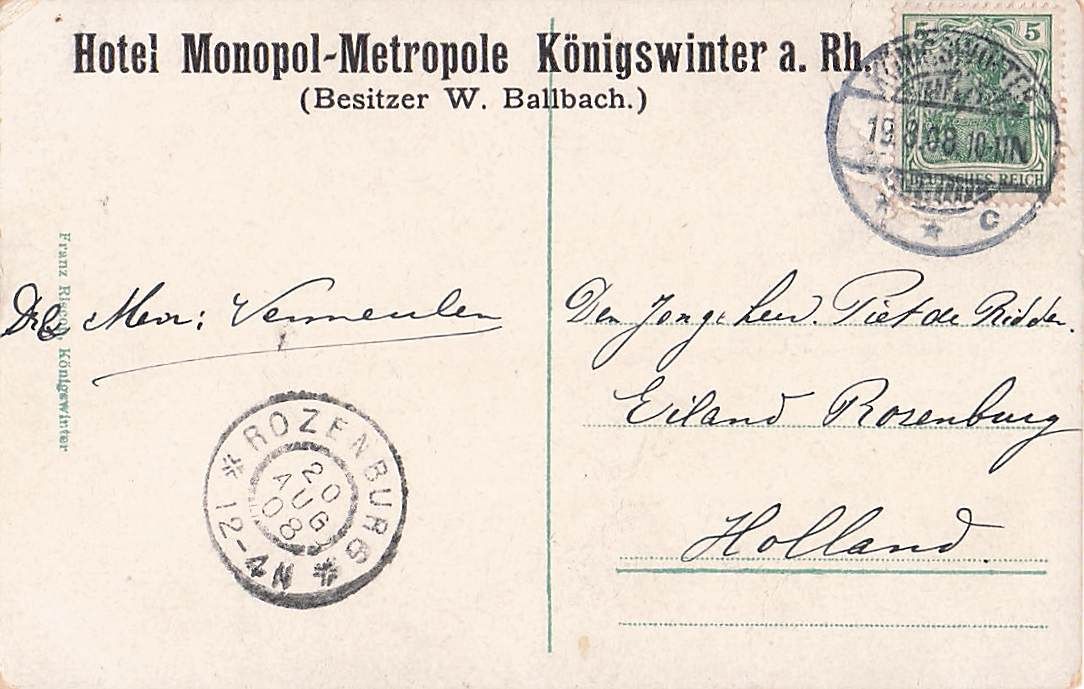 Hotel Monopol-Metropole Königswinter a. Rh.
(Besitzer W. Ballbach.)
5 5
KÖNIGSWINTER
19.8.08 10-11N
* * C
DEUTSCHES REICH
Mevr: Vermeulen
Den Jongeheer. Piet de Ridder.
Eiland Rozenburg
Holland.
* ROZENBURG *
20
AUG
08
12-4N
Franz Königswinter